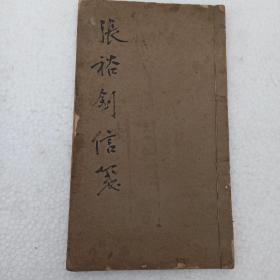 張裕釗信箋